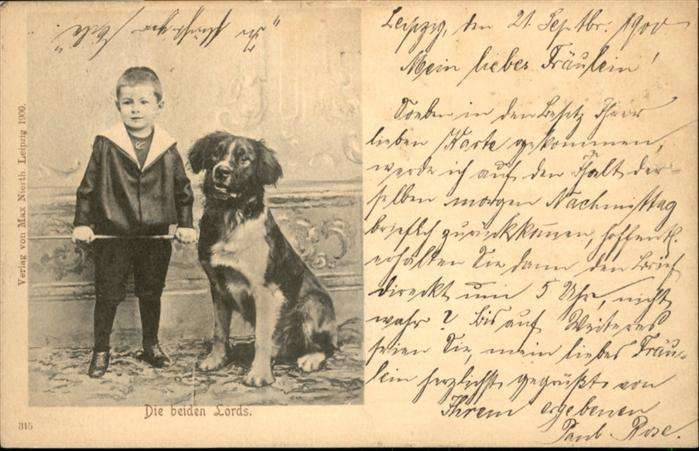 Leipzig, den 21. Septbr. 1900
Mein liebes Fräulein!
Soeben in den Besitz Ihrer
lieben Karte gekommen,
werde ich auf den Inhalt der-
selben morgen Nachmittag
brieflich zurückkommen, hoffentl.
erhalten Sie dann den Brief
direkt um 5 Uhr, nicht
wahr? Bis auf Weiteres
seien Sie, mein liebes Fräu-
lein herzlichst gegrüßt von
Ihrem ergebenen
Paul Rose.
Verlag von Max Nierth. Leipzig 1900.
Die beiden Lords.
315